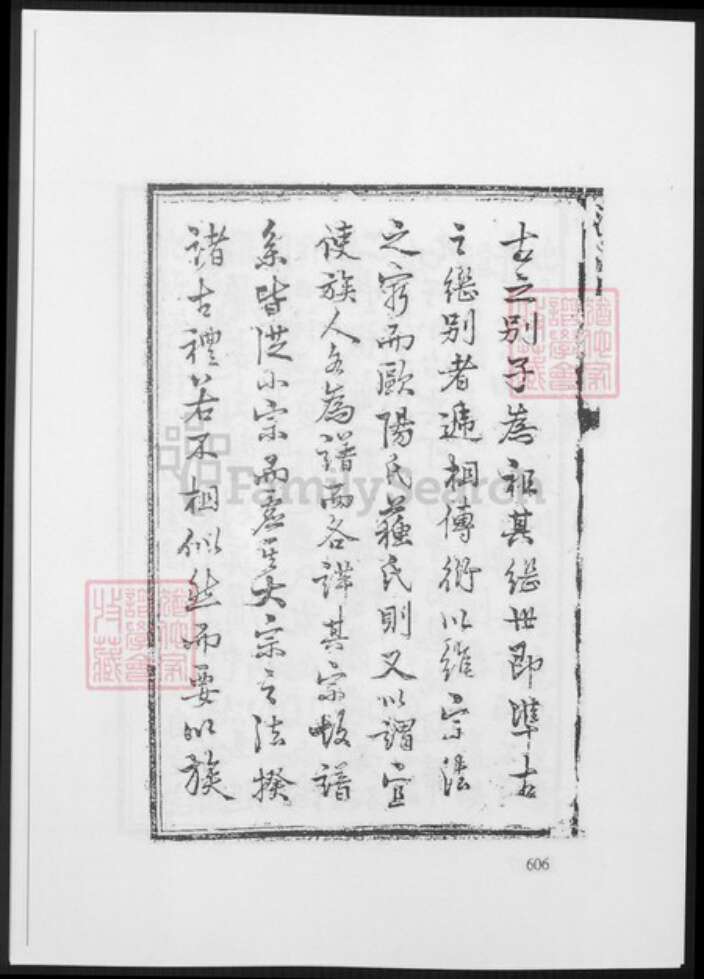 古之別子為祖其繼世即準古
之繼別者遞相傳衍以維宗法
之窮而歐陽氏蘇氏則又以謂宜
使族人各為譜而各詳其宗故譜
系皆從小宗而虛其大宗之法揆
諸古禮若不相似然而要以族
FamilySearch
606